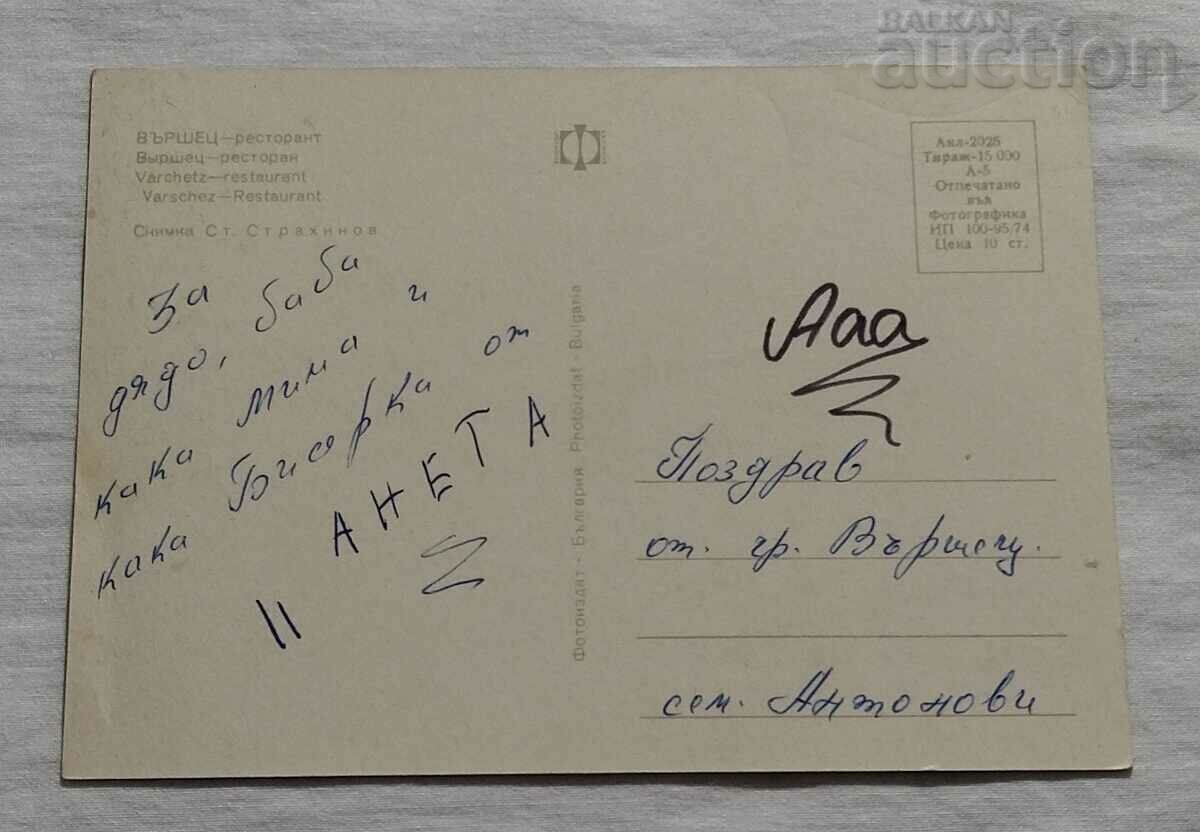 BALKAN
auction
ВЪРШЕЦ—ресторант
Выршец—ресторан
Varchetz—restaurant
Varschez—Restaurant
Снимка Ст. Страхинов
За
дядо, баба
кака Мима и
кака Бисерка от
АНЕТА
Фотоиздат - България Photoizdat - Bulgaria
Акл-2025
Тираж-15 000
А-5
Отпечатано
във
Фотографика
ИП 100-95/74
Цена 10 ст.
Ааа
Поздрав
от гр. Вършец.
сем. Антонови